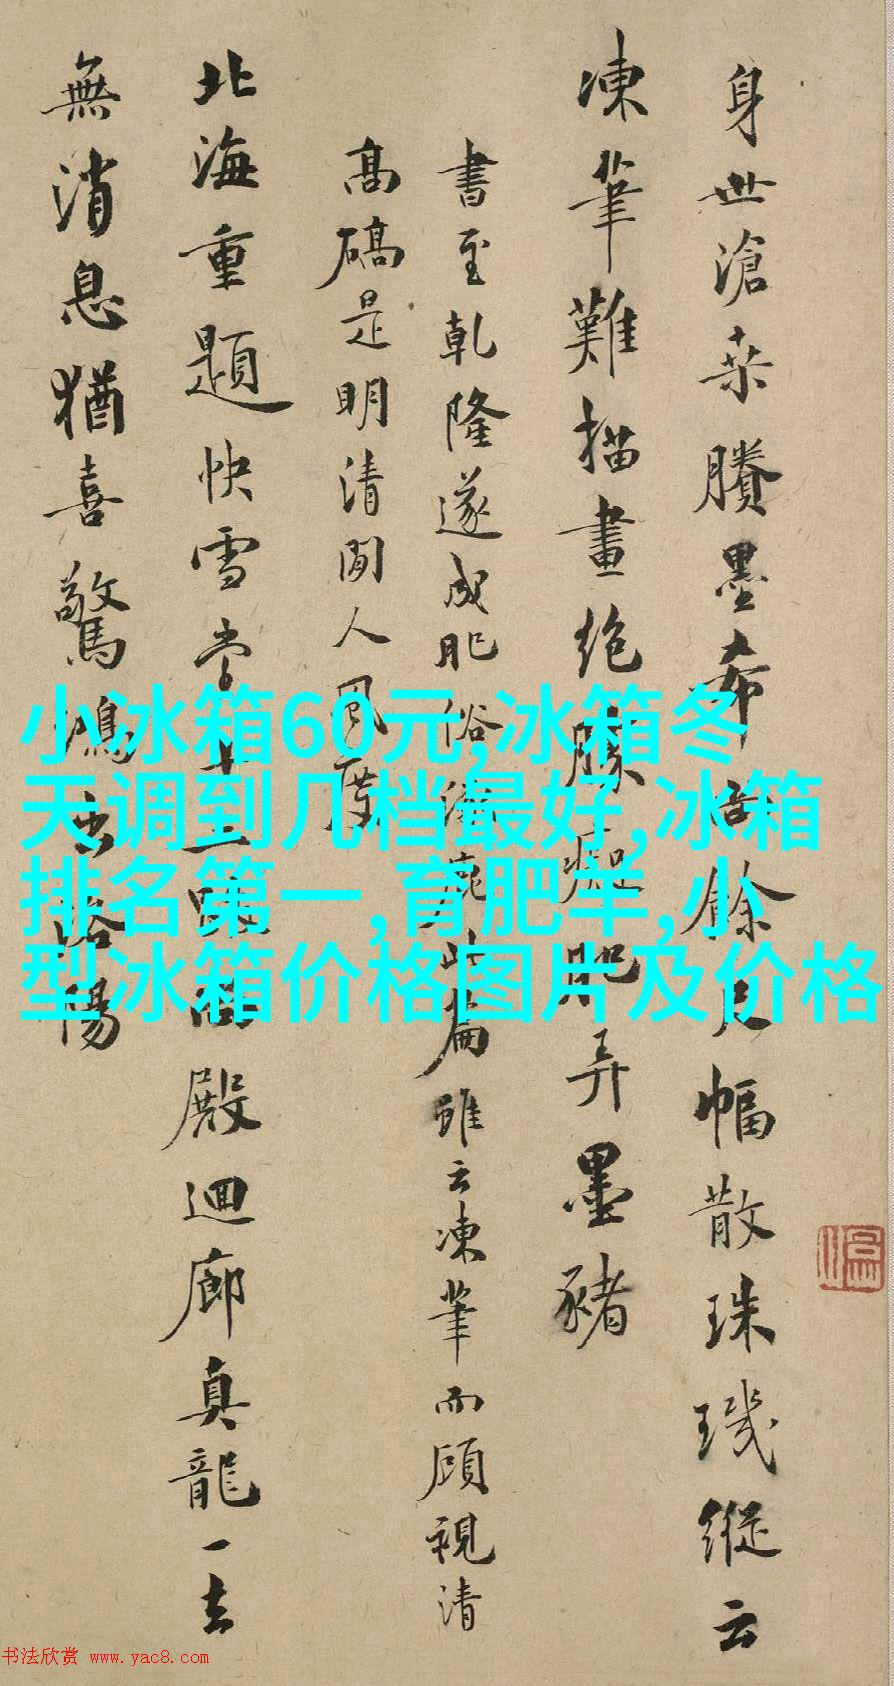 身世滄桑賸墨希餘尺幅散珠璣縱云
凍筆難描畫絶勝癡肥弄墨豬
書至乾隆遂成肥俗此篇雖云凍筆而顧視清
高碻是明清間人風度
北海重題快雪堂殿迴廊真龍一去
無消息猶喜驚鴻出洛陽
小冰箱60元,冰箱冬
天调到几档最好,冰箱
排名第一,育肥羊,小
型冰箱价格图片及价格
书法欣赏 www.yac8.com